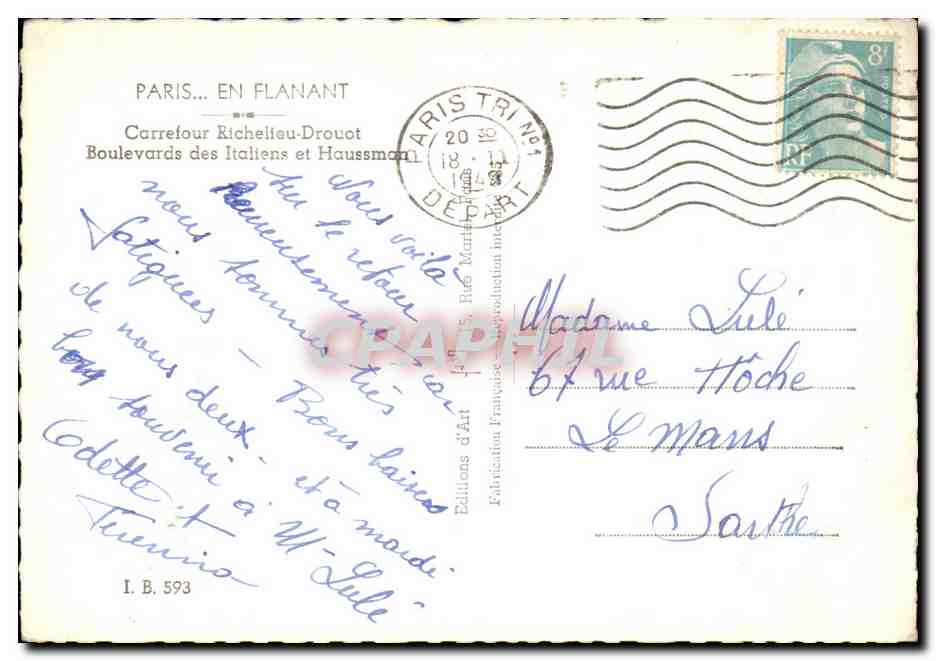 PARIS... EN FLANANT
Carrefour Richelieu-Drouot
Boulevards des Italiens et Haussman
Nous voilà
sur le retour
heureusement car
nous sommes très
fatiguées — Bons baisers
de nous deux et à mardi
bon souvenir à M- Lulé
Odette et
I. B. 593
PARIS TRI No1
20 30
18 - 11
194
DÉPART
8F
RF
Editions d'Art 15, Rue Martel, Paris
Fabrication Française - Reproduction inter
CPAPHIL
Madame Lulé
67 rue Hôche
Le Mans
Sarthe